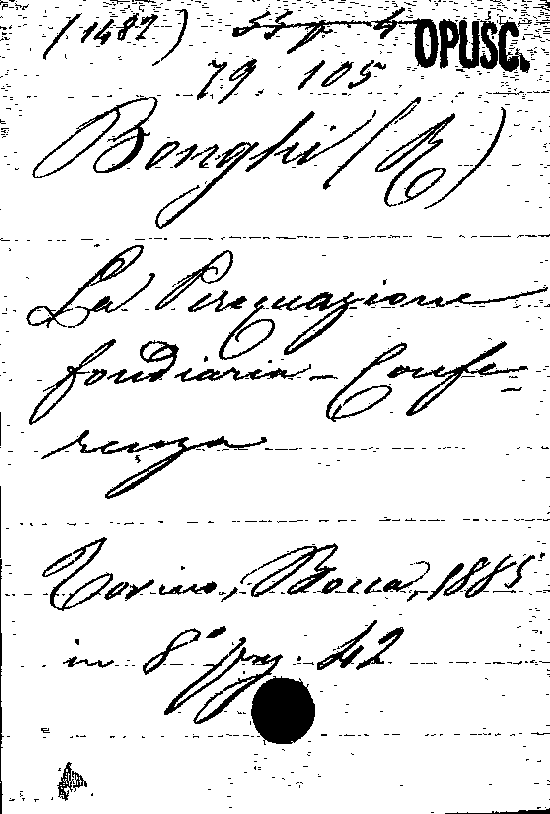 (1482) OPUSC.
79. 105
Bonghi (R)
La Perequazione
fondiaria - Confe-
renza
Torino, Bocca, 1885
in 8° pag. 42